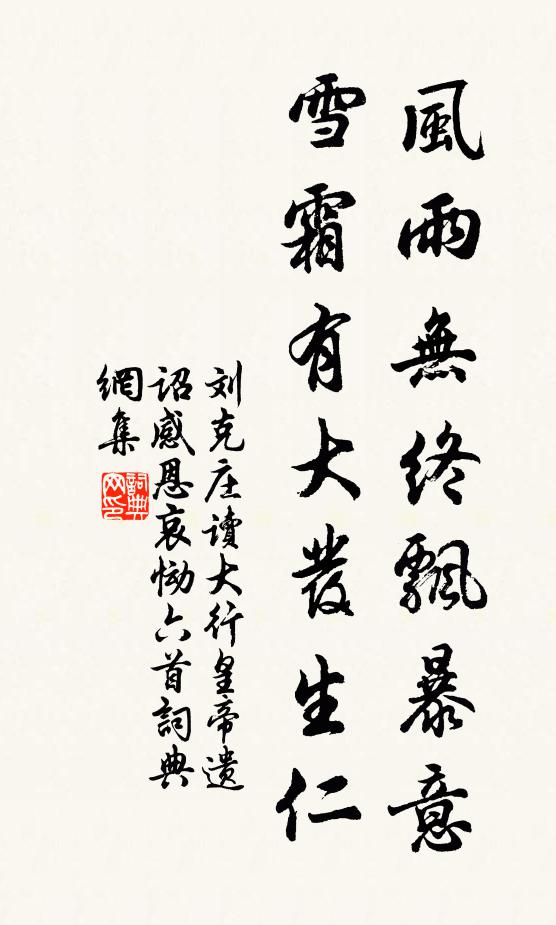 風雨無終飄暴意
雪霜有大發生仁
刘克庄讀大行皇帝遗
詔感恩哀恸六首詞典
網集
詞典
网印